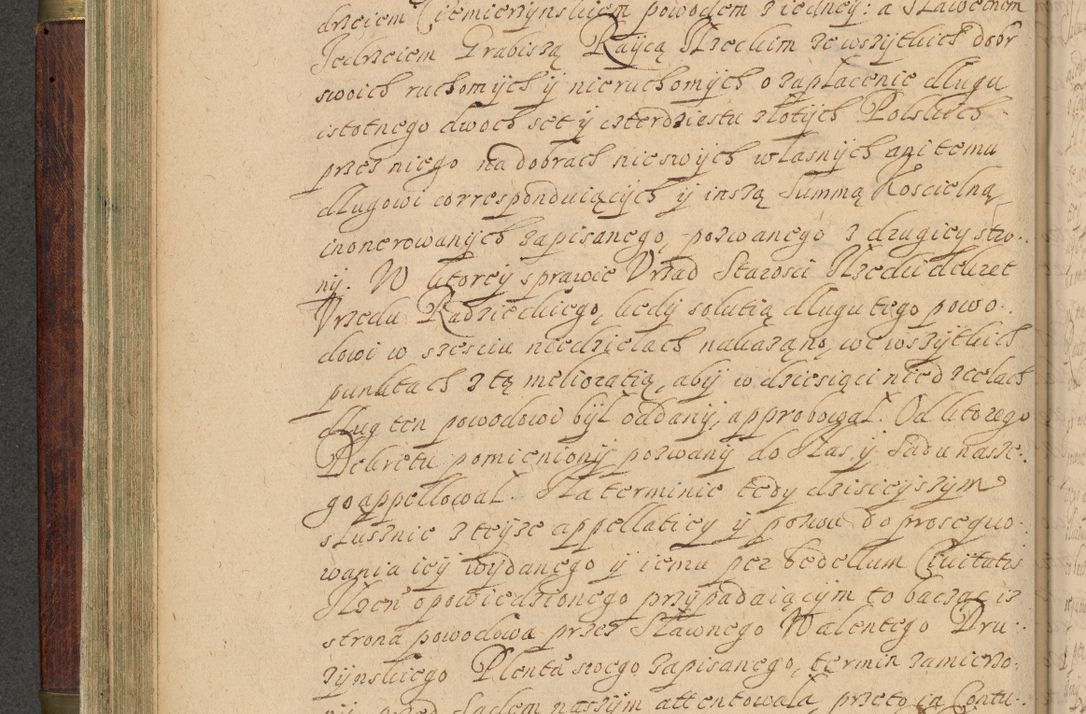 drzeiem Ciemierzynskiem powodem z iedney: a Sławetnem
Jedrzeiem Grabiszą Raycą Rzeckim ze wszytkich dobr
swoich ruchomych y nieruchomych o zaplacenie dlugu
istotnego dwoch set y czterdziestu złotych Polskich
przez niego na dobrach nieswoych własnych ani temu
długowi correspondujących y inszą Summą Koscielną
inonerowanych zapisanego, pozwanego z drugiey stro-
ny. W ktorey sprawie Vrząd Starosci Rzecki dekret
Vrzędu Radzieckiego, kiedy solutią dlugu tego powo-
dowi w szesciu niedzielach nakazano, we wszytkich
punktach z tą melioratią, aby w dziesiąci niedzielach
dług ten powodowi był oddany, approbował. Od ktorego
Dekretu pomieniony pozwany do Nas y Sadu nasze-
go appellował. Na terminie tedy dzisieyszym
słusznie z teyze appellatiey y pozwu do prosequo-
wania iey wydanego y iemu per bedellum Ciuitatis
Rzen opowiedzionego przypadaiącym to bacząc iz
strona powodowa przez Sławnego Walentego Dru-
zynskiego Plenta swego zapisanego, termin zamierzo-
ny przed Sadem naszym attentowała, przeto ią Contu-